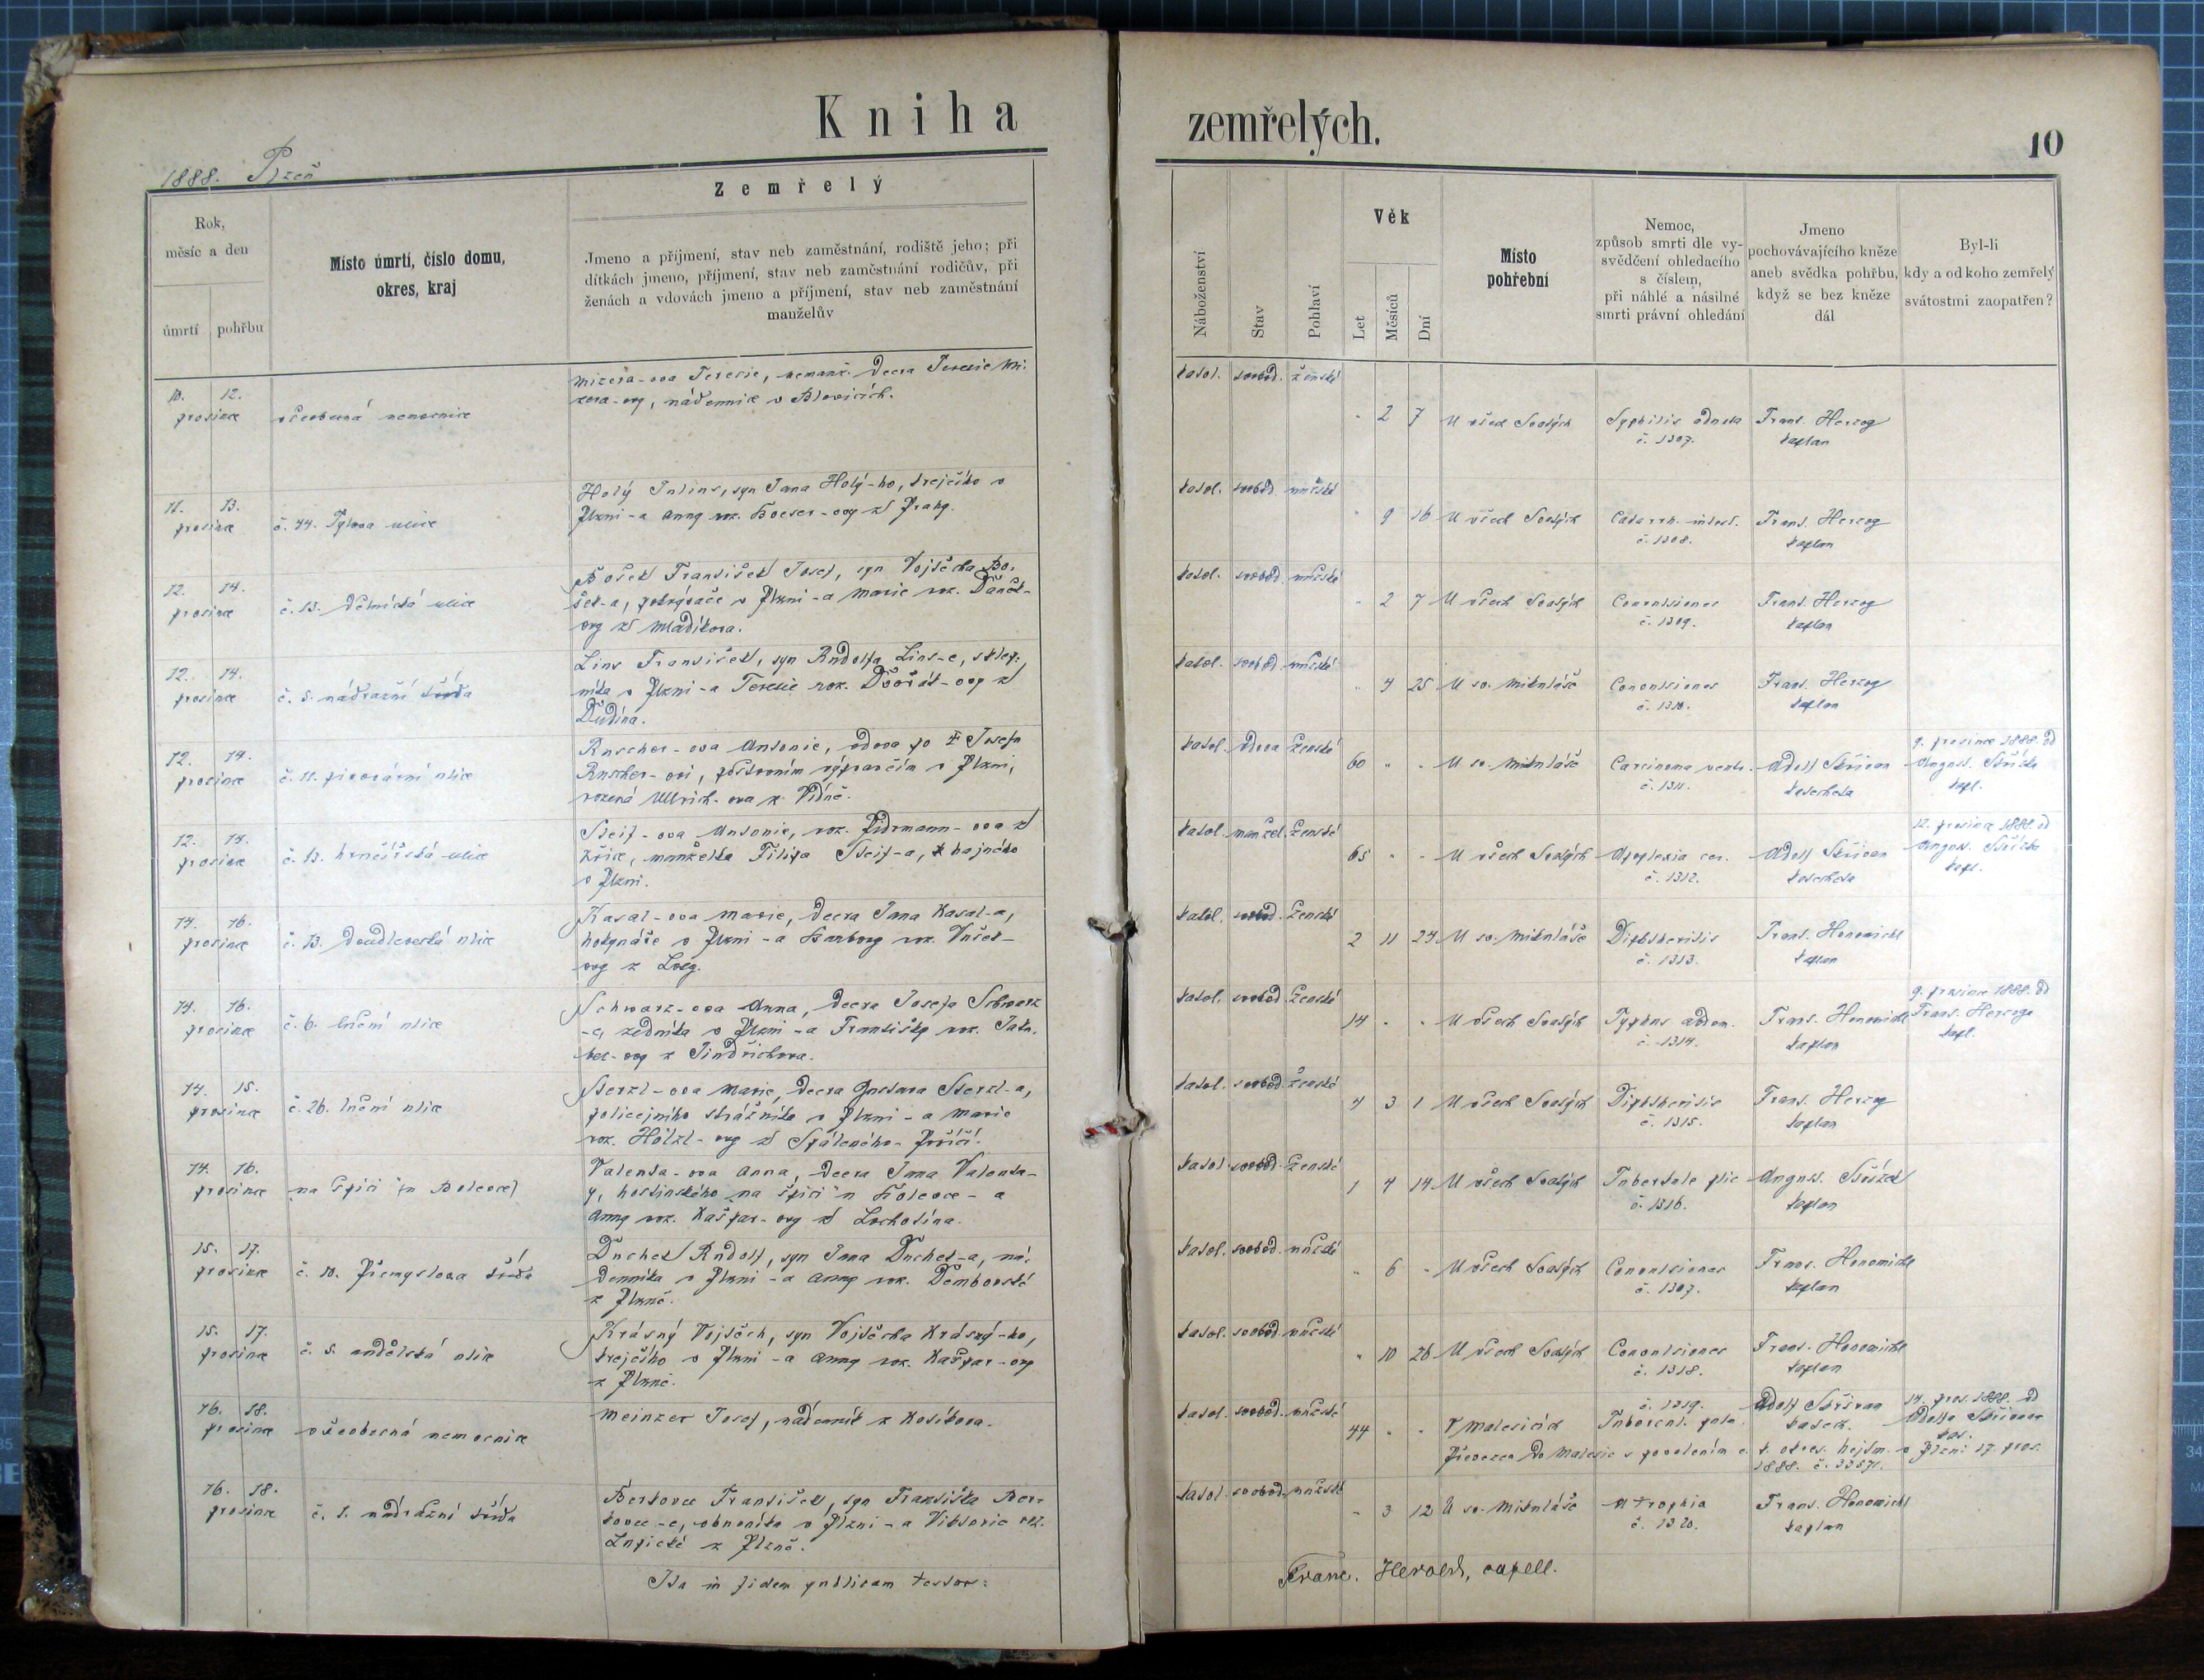 Kniha
zemřelých.
10
1888. Plzeň
Rok,
měsíc a den
úmrtí
pohřbu
Místo úmrtí, číslo domu,
okres, kraj
Zemřelý
Jmeno a příjmení, stav neb zaměstnání, rodiště jeho; při
dítkách jmeno, příjmení, stav neb zaměstnání rodičův, při
ženách a vdovách jmeno a příjmení, stav neb zaměstnání
manželův
Náboženství
Stav
Pohlaví
Věk
Let
Měsíců
Dní
Místo
pohřební
Nemoc,
způsob smrti dle vy-
svědčení ohledacího
s číslem,
při náhlé a násilné
smrti právní ohledání
Jmeno
pochovávajícího kněze
aneb svědka pohřbu,
když se bez kněze
dál
Byl-li
kdy a od koho zemřelý
svátostmi zaopatřen?
10. 12.
prosince
všeobecná nemocnice
Mizera-ova Terezie, nemanž. dcera Terezie Mi-
zera-ovy, nádennice v Blovicích.
katol. svobod. ženské
" 2 7 U všech Svatých
Syphilis adnata
č. 1307.
Frant. Herzog
kaplan
11. 13.
prosince
č. 44. Tylova ulice
Holý Julius, syn Jana Holý-ho, krejčího v
Plzni - a Anny roz. - ovy z Prahy.
katol. svobod. mužské
" 9 16 U všech Svatých
Catarrh. intest.
č. 1308.
Frant. Herzog
kaplan
12. 14.
prosince
č. 13. Dělnická ulice
Bošek František Josef, syn Vojtěcha Bo-
šek-a, pokrývače v Plzni - a Marie roz. Daněk-
ovy z Mladíkova.
katol. svobod. mužské
" 2 7 U všech Svatých
Convulsiones
č. 1309.
Frant. Herzog
kaplan
12. 14.
prosince
č. 5. nádražní třída
Lins František, syn Rudolfa Lins-e, sklep-
níka v Plzni - a Terezie roz. Dvořák-ovy z
katol. svobod. mužské
" 4 25 U sv. Mikuláše
Convulsiones
č. 1310.
Frant. Herzog
kaplan
12. 14.
prosince
č. 11. pivovární ulice
Ruscher-ova Antonie, vdova po † Josefu
Ruscher-ovi, poštovním výpravčím v Plzni,
rozená Ullrich-ova z Vídně.
katol. vdova ženské
60 " " U sv. Mikuláše
Carcinoma ventr.
č. 1311.
Adolf Skřivan
katecheta
9. prosince 1888. od
August. Stříčka
kapl.
12. 14.
prosince
č. 13. hrnčířská ulice
Steif-ova Antonie, roz. Fidrmann-ova z
manželka Filipa Steif-a, hajného
v Plzni.
katol. manžel. ženské
65 " " U všech Svatých
Apoplexia cer.
č. 1312.
Adolf Skřivan
katecheta
12. prosince 1888. od
August. Stříčka
kapl.
14. 16.
prosince
č. 13. Doudlevecká ulice
Kasal-ova Marie, dcera Jana Kasal-a,
hokynáře v Plzni - a Barbory roz.
ovy z
katol. svobod. ženské
2 11 24 U sv. Mikuláše
Diphtheritis
č. 1313.
Frant. Honomichl
kaplan
14. 16.
prosince
č. 6. luční ulice
Schwarz-ova Anna, dcera Josefa Schwarz
-e, zedníka v Plzni - a Františky roz. Jaku-
bec-ovy z Jindřichova.
katol. svobod. ženské
14 " " U všech Svatých
Typhus abdom.
č. 1314.
Frant. Honomichl
kaplan
9. prosince 1888. od
Frant. Herzoga
kapl.
14. 15.
prosince
č. 26. luční ulice
Sterzl-ova Marie, dcera Gustava Sterzl-a,
policejního strážníka v Plzni - a Marie
roz. Hölzl-ovy z Spáleného-Poříčí.
katol. svobod. ženské
4 3 1 U všech Svatých
Diphtheritis
č. 1315.
Frant. Herzog
kaplan
14. 16.
prosince
na špici (u Bolevce)
Valenta-ova Anna, dcera Jana Valenta-
y, hostinského „na špici" u Bolevce - a
Anny roz. Kašpar-ovy z Lochotína.
katol. svobod. ženské
1 4 14 U všech Svatých
Tuberkule plic
č. 1316.
August. Stříčka
kaplan
15. 17.
prosince
č. 10. Přemyslova třída
Duchek Rudolf, syn Jana Duchek-a, ná-
denníka v Plzni - a Anny roz. Dembovské
z Plzně.
katol. svobod. mužské
" 6 " U všech Svatých
Convulsiones
č. 1307.
Frant. Honomichl
kaplan
15. 17.
prosince
č. 5. andělská ulice
Krásný Vojtěch, syn Vojtěcha Krásný-ho,
krejčího v Plzni - a Anny roz. Kašpar-ovy
z Plzně.
katol. svobod. mužské
" 10 26 U všech Svatých
Convulsiones
č. 1318.
Frant. Honomichl
kaplan
16. 18.
prosince
všeobecná nemocnice
Meinzer Josef, nádenník z Kosíkova.
katol. svobod. mužské
44 " " V Malesicích
č. 1319.
Tubercul. pulm.
Adolf Skřivan
katech.
14. pros. 1888. od
Adolfa Skřivana
kat.
Převezen do Malesic s povolením c. k. okres. hejtm. v Plzni 17. pros.
1888. č. 33571.
16. 18.
prosince
č. 1. nádražní třída
Berkovec František, syn Františka Ber-
kovec-e, obuvníka v Plzni - a Viktorie roz.
Lupické z Plzně.
katol. svobod. mužské
" 3 12 U sv. Mikuláše
Atrophia
č. 1320.
Frant. Honomichl
kaplan
Ita in fidem publicam testor:
Franc. Herold, capell.